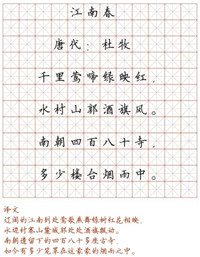 江南春
唐代：杜牧
千里莺啼绿映红，
水村山郭酒旗风。
南朝四百八十寺，
多少楼台烟雨中。
译文
辽阔的江南到处莺歌燕舞绿树红花相映，
水边村寨山麓城郭处处酒旗飘动。
南朝遗留下的四百八十多座古寺，
如今有多少笼罩在这蒙蒙的烟雨之中。